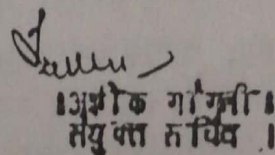 ।अशोक गांगुली।
संयुक्त सचिव ।